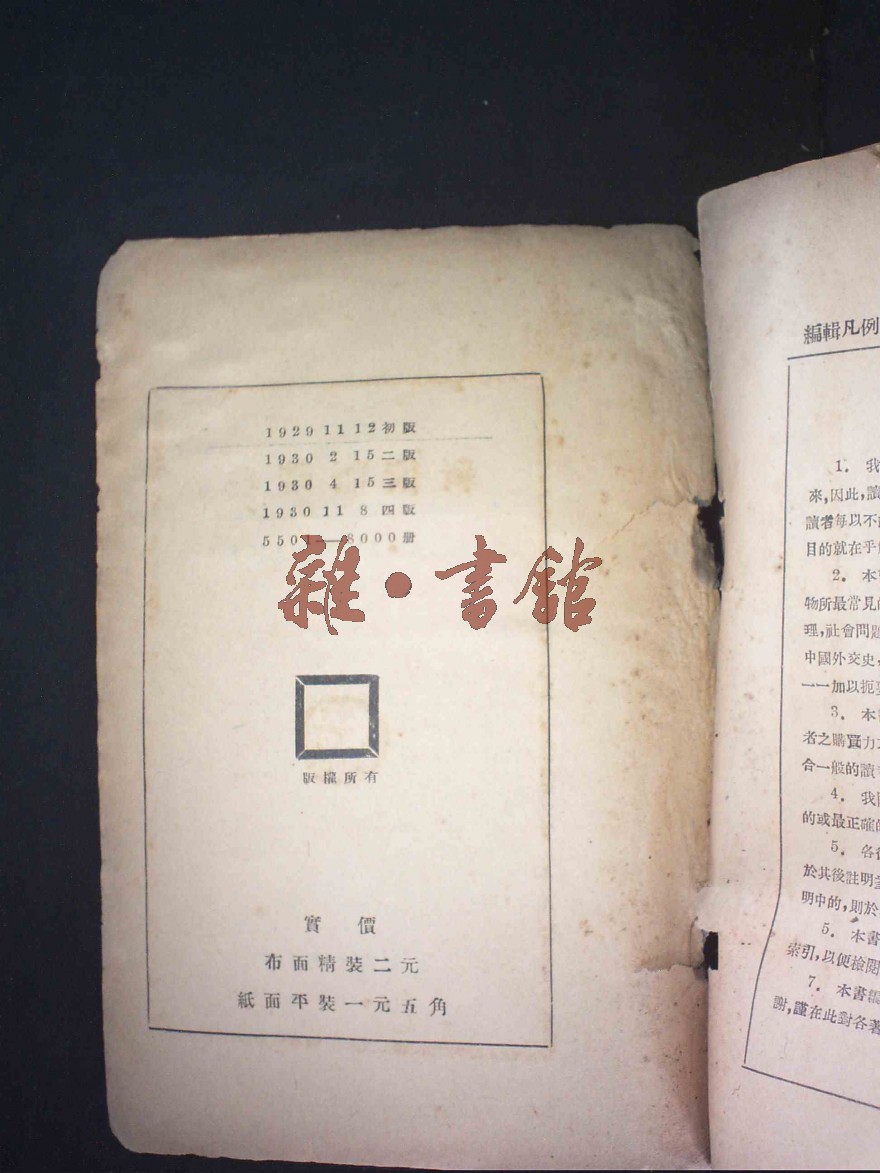 1929 11 12 初版
1930 2 15 二版
1930 4 15 三版
1930 11 8 四版
5501—8000册
雜·書館
版權所有
實價
布面精裝二元
紙面平裝一元五角
編輯凡例
1. 我
來,因此,讀
讀者每以不
目的就在乎
2. 本
物所最常見的
理,社會問題
中國外交史,
一一加以扼要
3. 本
者之購買力
合一般的讀
4. 我
的或最正確的
5. 各
於其後註明
明中的,則於
5. 本書
索引,以便檢閱
7. 本書編
謝,謹在此對各著